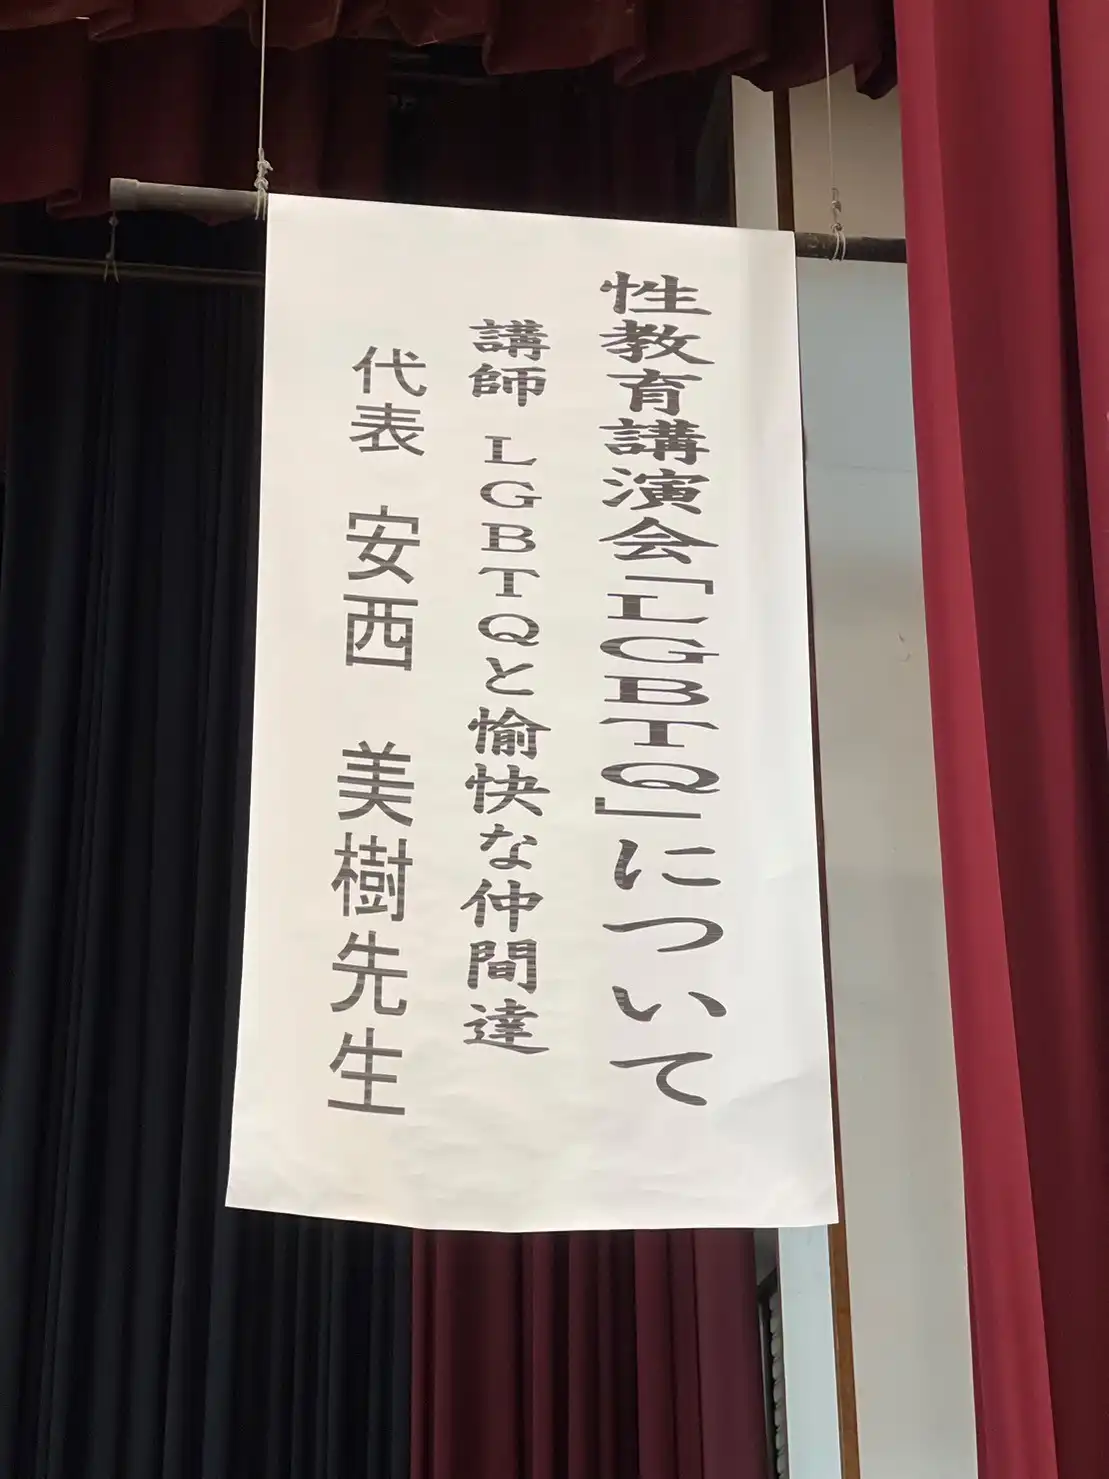 性教育講演会「LGBTQ」について
講師 LGBTQと愉快な仲間達
代表 安西 美樹先生